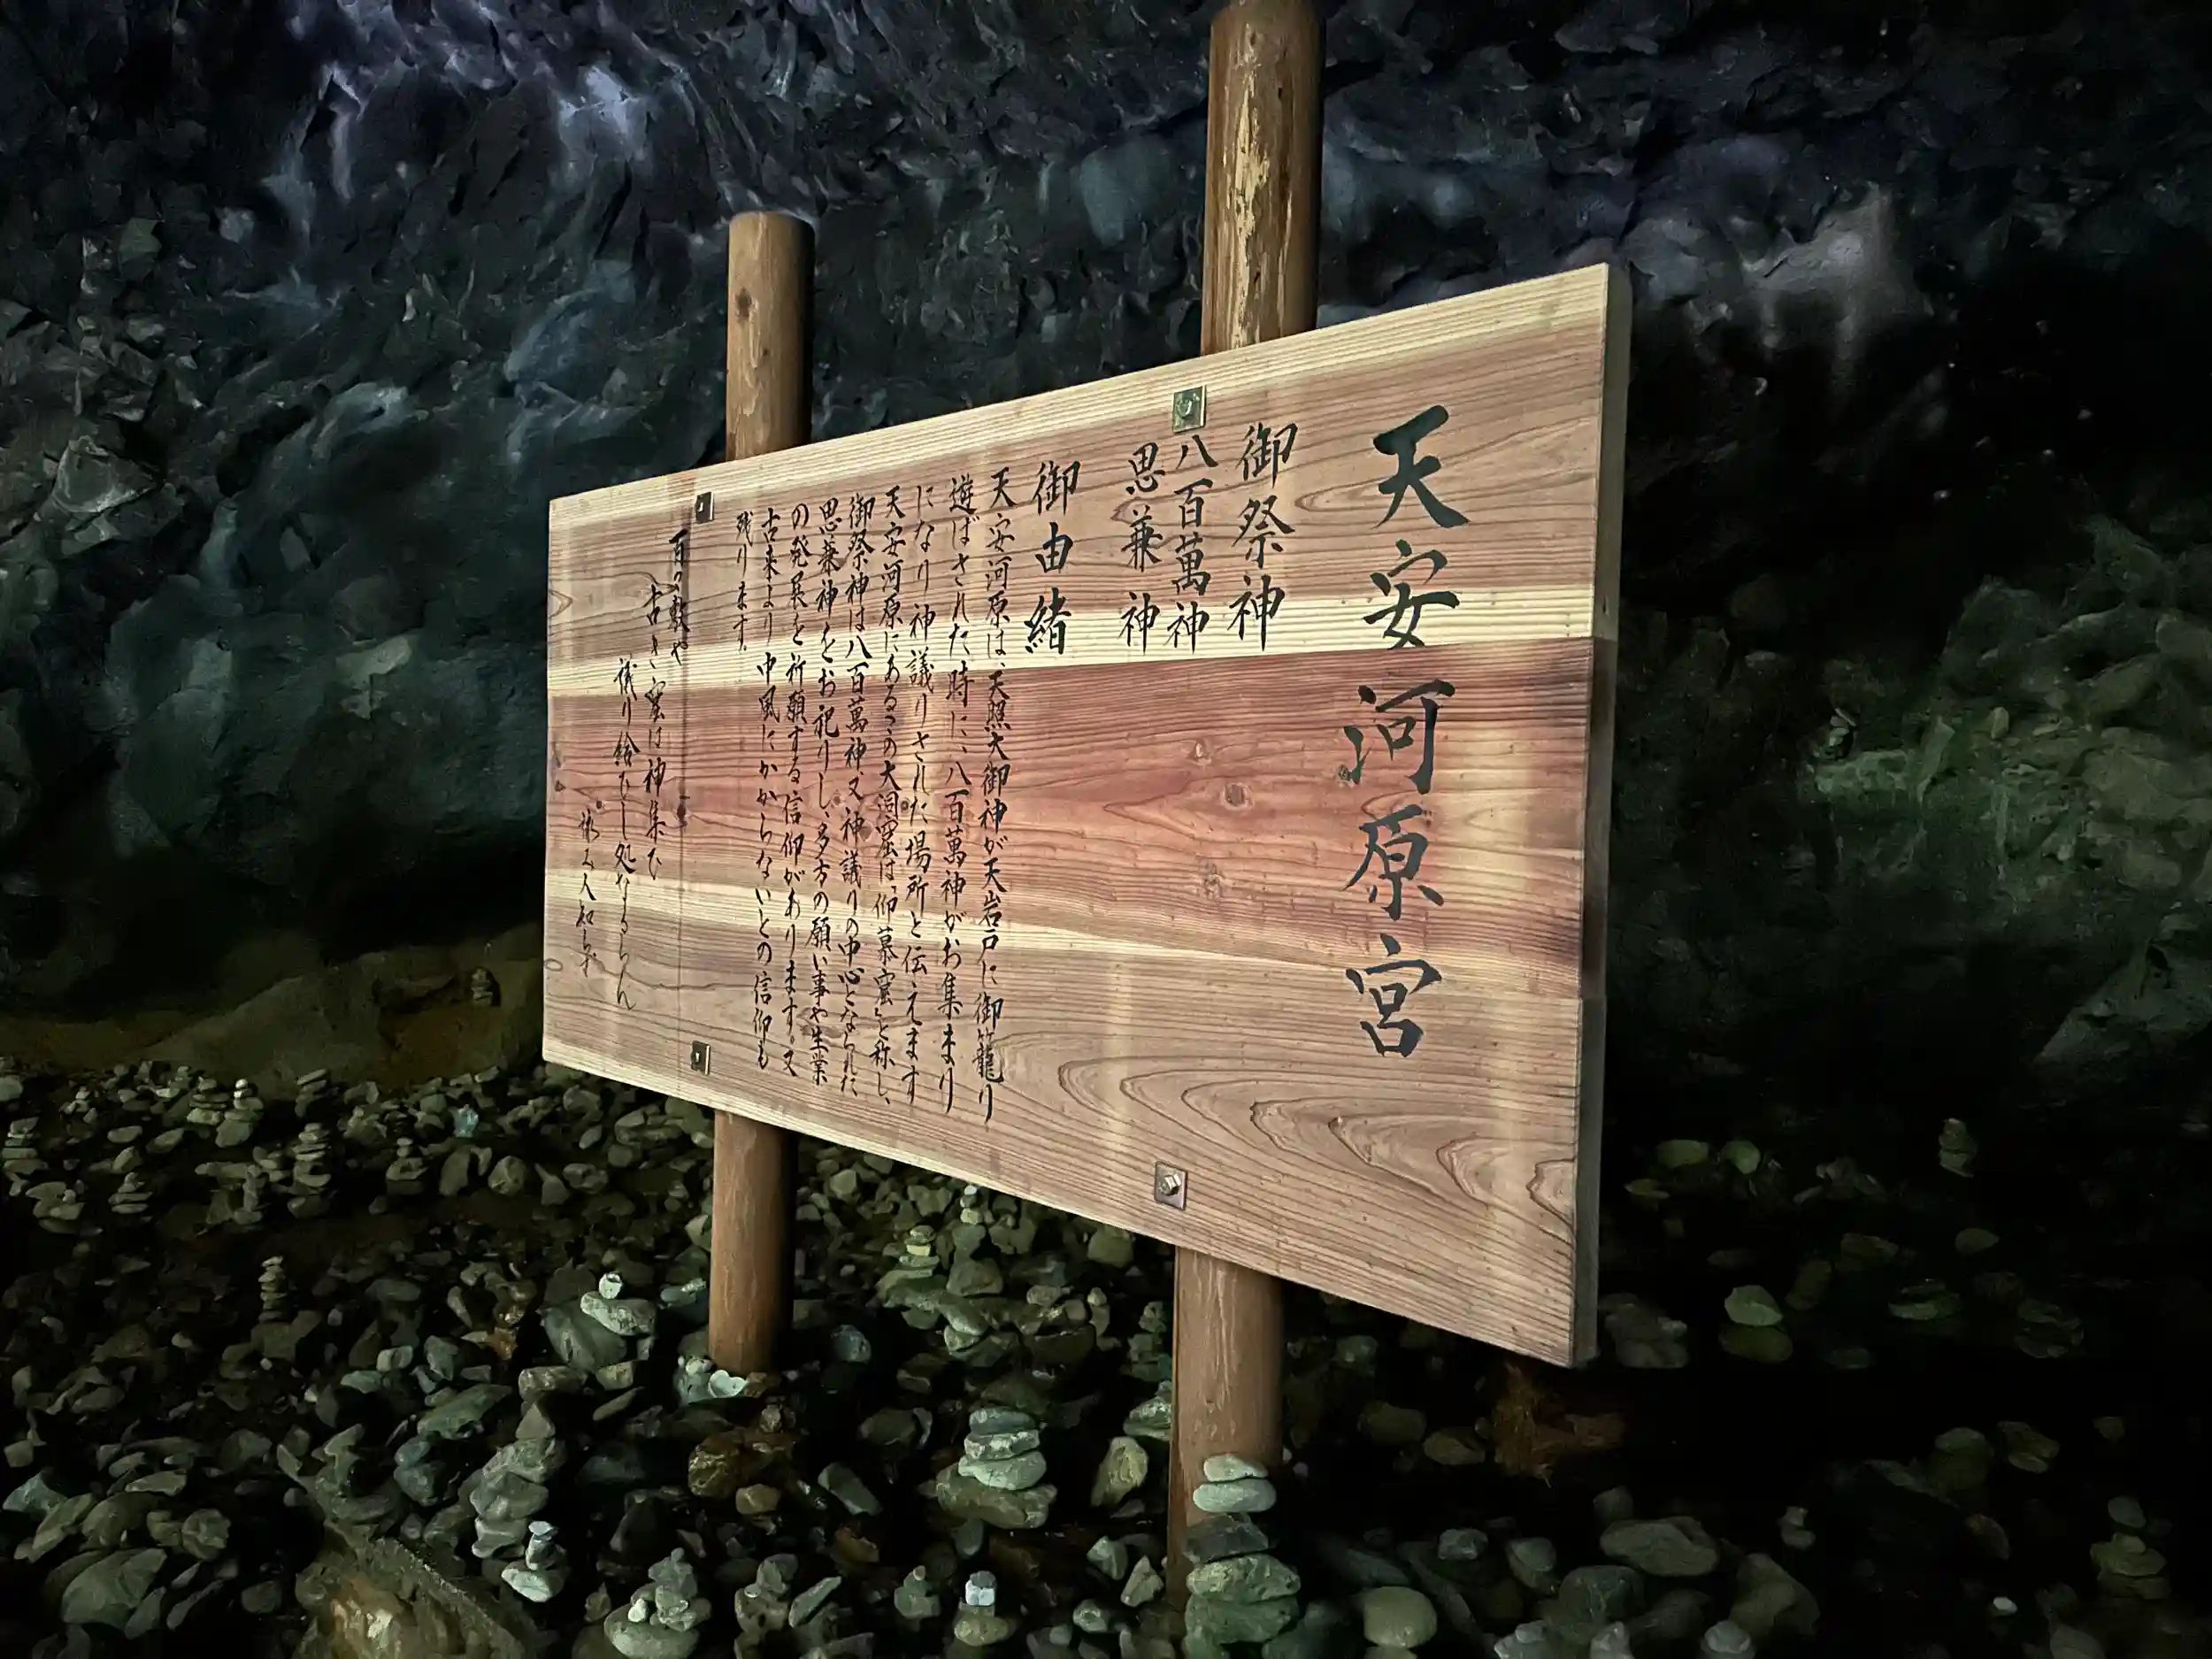 天安河原宮
御祭神
八百萬神
思兼神
御由緒
天安河原は、天照大御神が天岩戸に御籠り
遊ばされた時に、八百萬神がお集まり
になり神議りされた場所と伝えます
天安河原にあるこの大洞窟は「仰慕窟」と称し、
御祭神は八百萬神、又神議りの中心となられた
思兼神をお祀りし、多方の願い事や生業
の発展を祈願する信仰があります。又
古来より中風にかからないとの信仰も
残ります。
百の敷や
古き窟は神集ひ
議り給ひし処なるらん
詠み人知らず